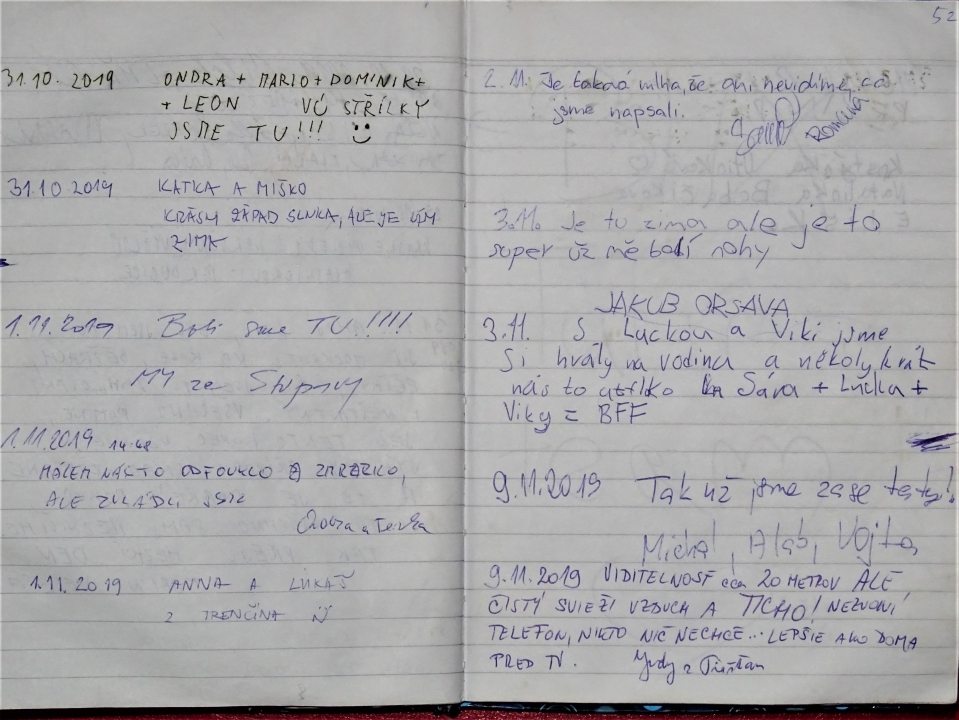 31.10.2019 ONDRA + MARIO + DOMINIK +
+ LEON VÚ STŘÍLKY
JSME TU!!!
31.10.2019 KATKA A MIŠKO
KRÁSNY ZÁPAD SLNKA, ALE JE
ZIMA
1.11.2019 Boli sme TU!!!!
MY ze Stupavy
1.11.2019 14:48
MÁLEM NÁS TO ODFOUKLO A ZMRAZILO,
ALE ZVLÁDLI JSME
a Terka
1.11.2019 ANNA A LUKÁŠ
Z TRENČÍNA
52
2.11. Je taková mlha, že ani nevidíme, co
jsme napsali.
3.11. Je tu zima ale je to
super už mě bolí nohy
JAKUB ORSAVA
3.11. S Luckou a Viki jsme
si hrály na vodinu a několy krát
nás to Sára + Lucka +
Viky = BFF
9.11.2019 Tak už jsme zase tady!
Michal, Vojta
9.11.2019 VIDITEĽNOSŤ cca 20 METROV ALE
ČISTÝ SVIEŽI VZDUCH A TICHO! NEZVONÍ
TELEFON, NIKTO NIČ NECHCE... LEPŠIE AKO DOMA
PRED TV.